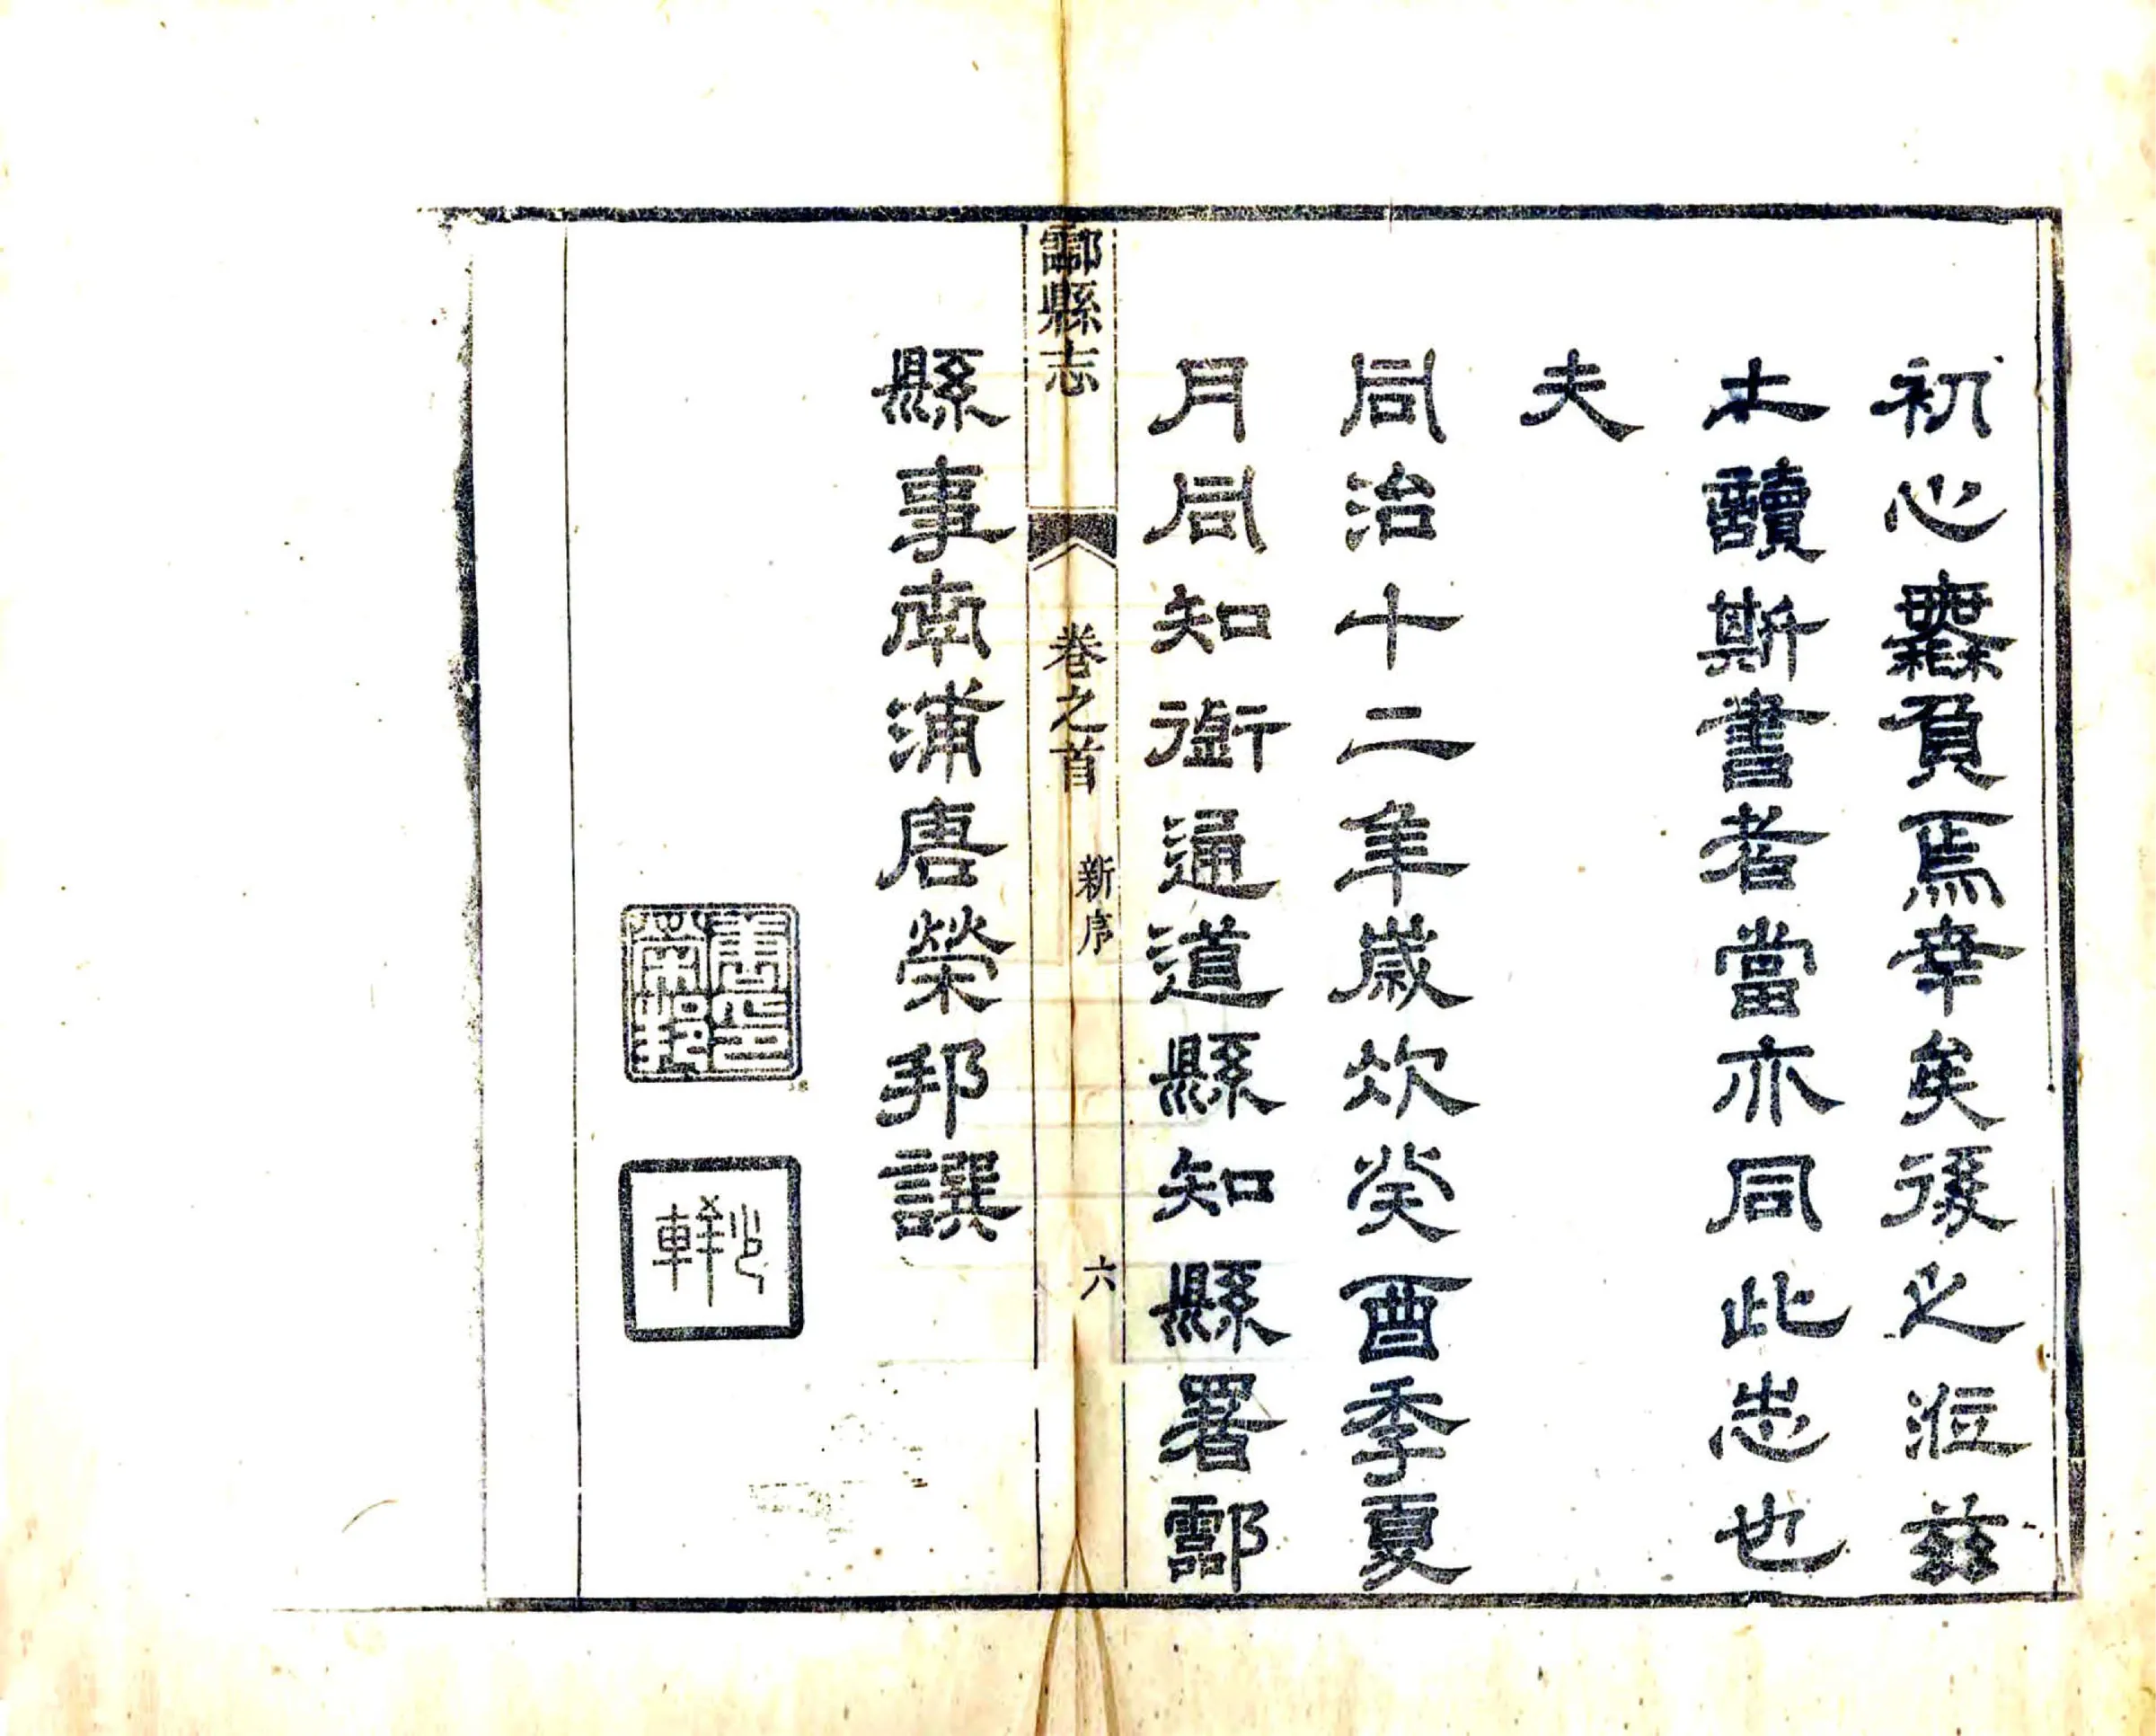 初心𣠮負焉幸矣後之涖茲
土讀斯書者當亦同此志也
夫
同治十二年歲次癸酉季夏
月同知銜通道縣知縣署酃
酃縣志 卷之首 新序 六
縣事南浦唐榮邦譔